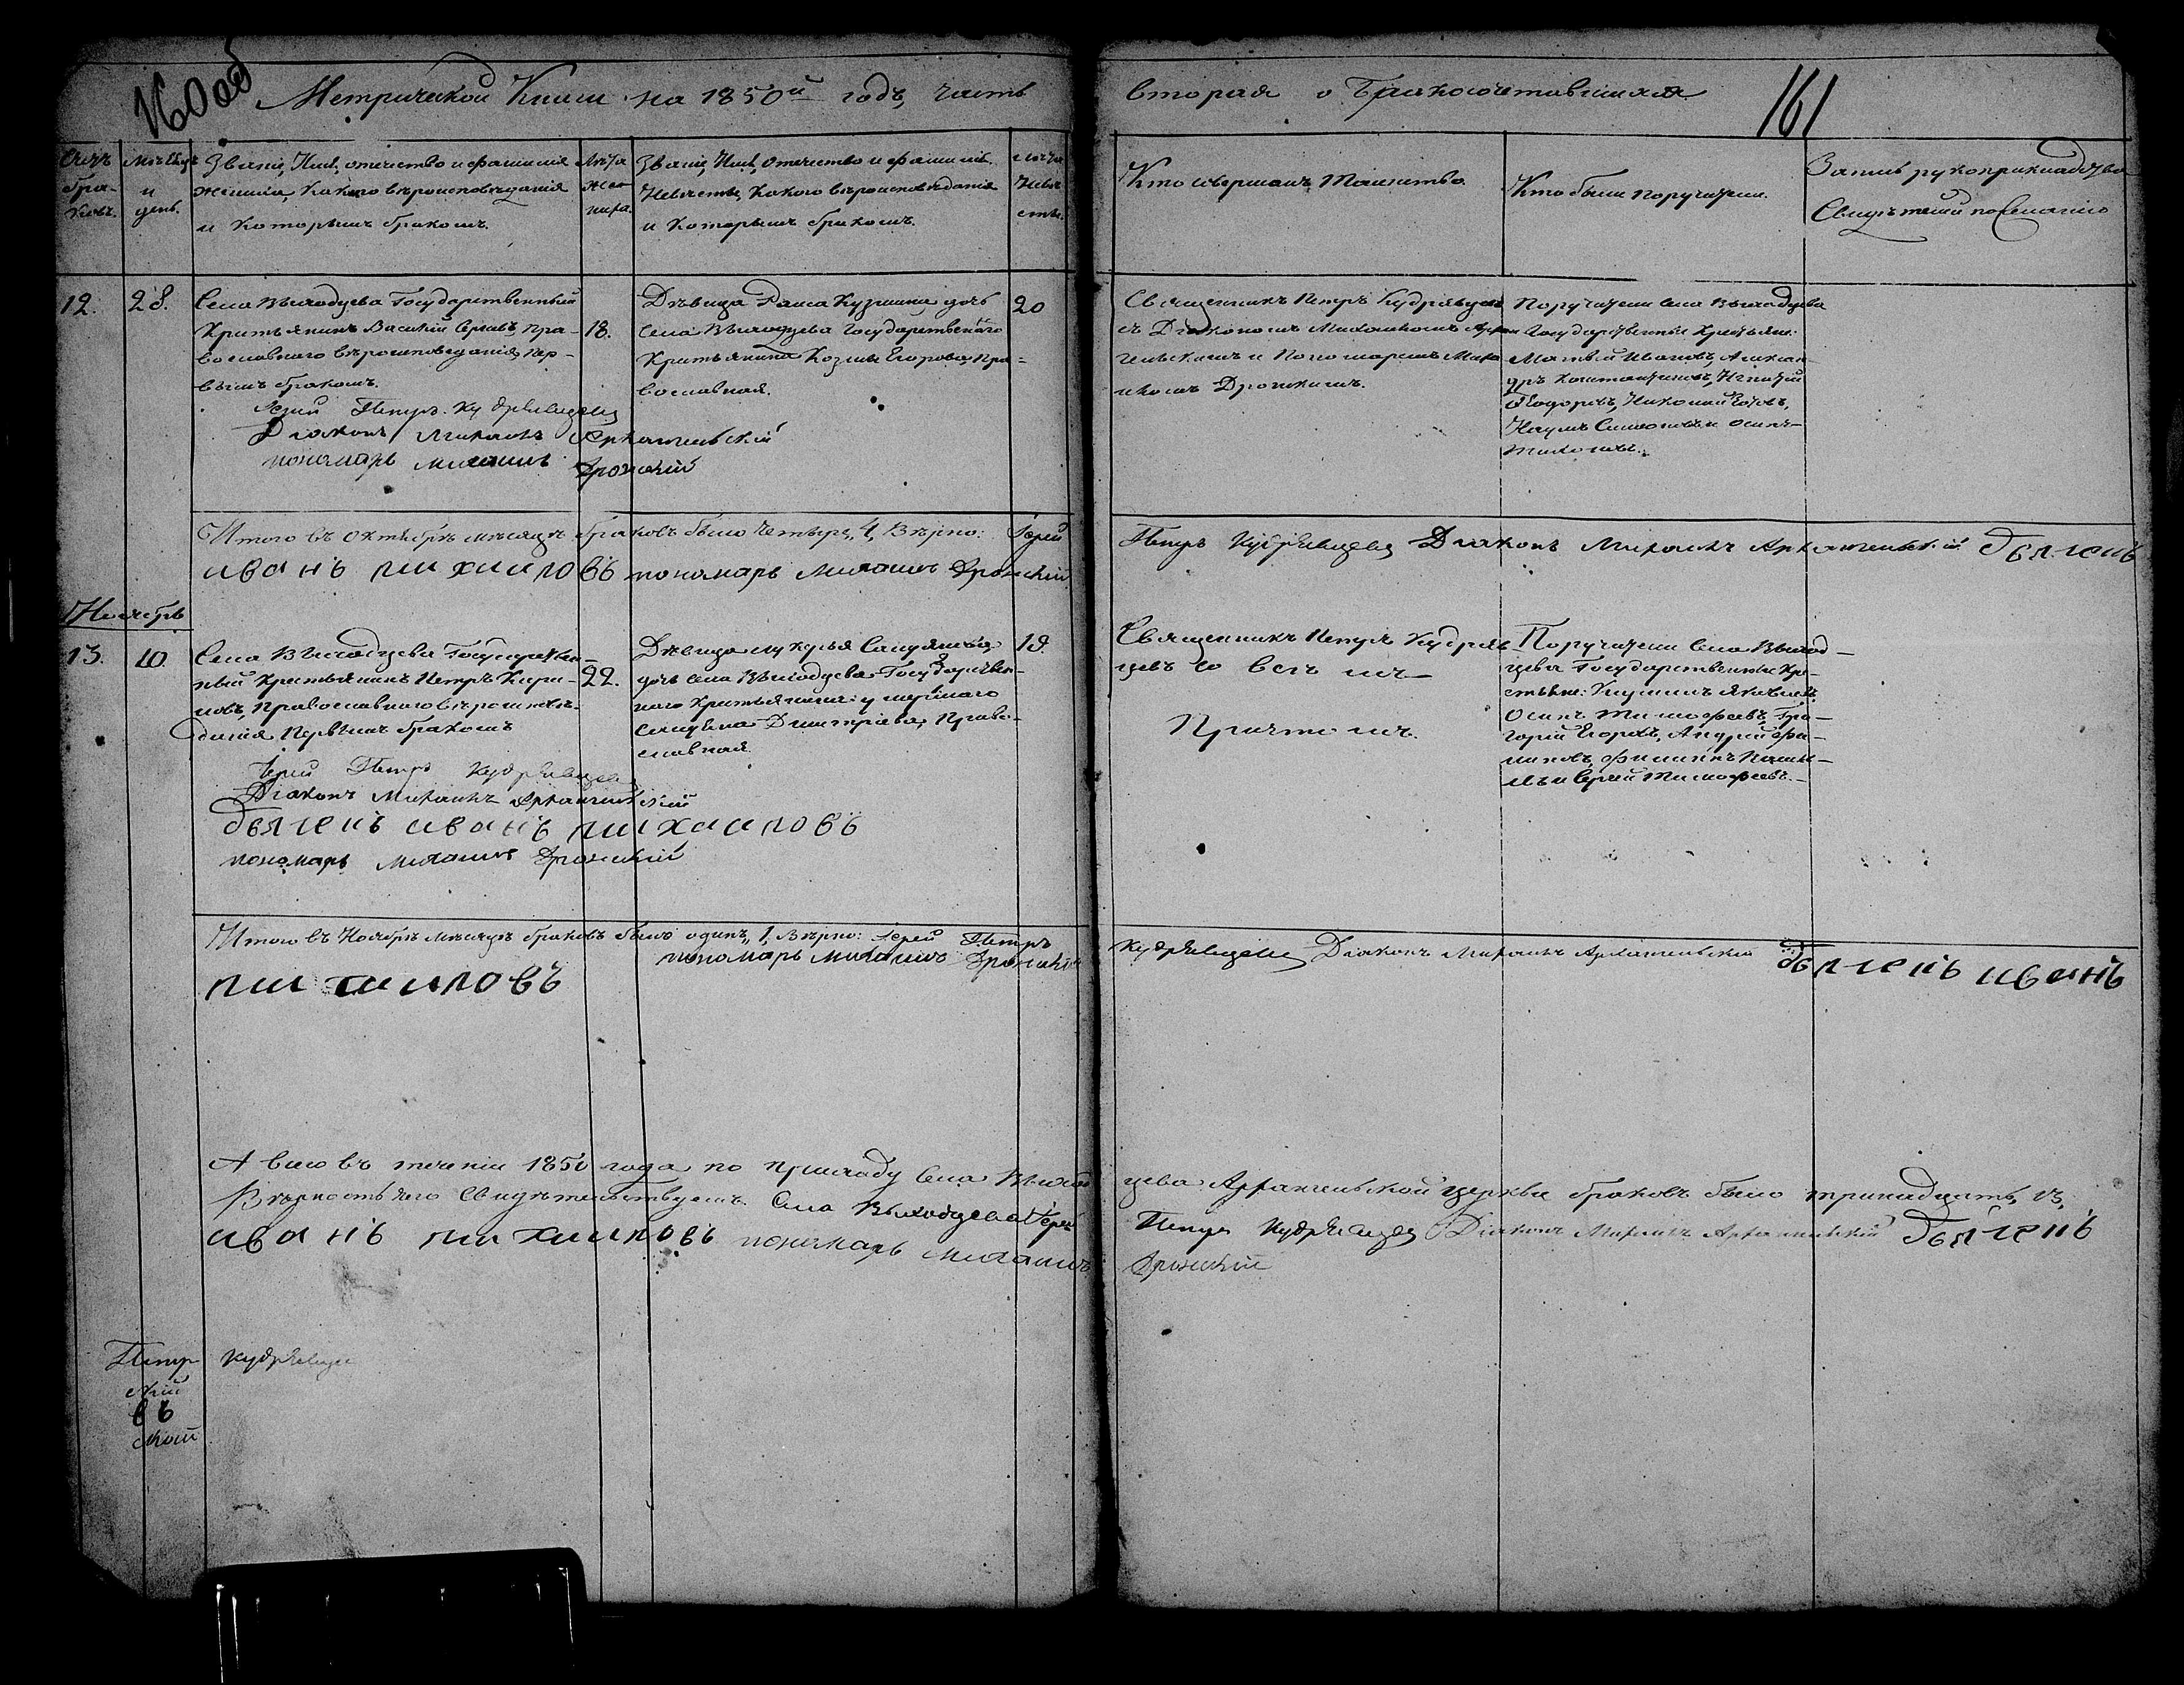 160об
Метрической Книги на 1850й годъ, часть вторая о бракосочетавшихся.
161
Счетъ бра-ковъ.
Мѣсяцъ и день.
Званіе, Имя, отчество и фамилія
жениха, Какого вѣроисповѣданія
и Которымъ бракомъ.
Лѣта же-ниха.
Званіе, Имя, Отчество и фамилія
Невѣсты, Какого вѣроисповѣданія
и Которымъ бракомъ.
Лѣта Невѣ-сты.
Кто совершалъ Таинство.
Кто были поручители.
Запись рукоприкладства
Свидѣтелей по Желанію
12.
28.
Села Выходцева Государственный
Крестьянинъ Василій Сергѣевъ, пра-
вославнаго вѣроисповѣданія, пер-
вымъ бракомъ.
Іерей Петръ Кудрявцевъ
Діаконъ Михаилъ Архангельскій
пономарь Михаилъ
18.
Дѣвица Кузьмина дочь
Села Выходцева Государственнаго
Крестьянина Козмы Егорова, Пра-
вославная.
20
Священникъ Петръ Кудрявцевъ
съ Діакономъ Михаиломъ Архан
гельскимъ и Пономаремъ Миха
иломъ
Поручители Села Выходцева
Государственные Крестьяне:
Матвѣй Ивановъ, Алексан-
дръ Константиновъ, Игнатій
Ѳедоровъ, Николай
Наумъ и Осипъ
Итого въ октябрѣ мѣсяцѣ браковъ было четыре, 4, Вѣрно: Іерей Петръ Кудрявцевъ Діаконъ Михаилъ Архангельскій дьячекъ
иванъ михаиловъ пономарь Михаилъ
Ноябрь
13.
10.
Села Выходцева Государствен-
ный Крестьянинъ Петръ Кири-
ловъ, Православнаго вѣроисповѣ-
данія Первымъ бракомъ
Іерей Петръ Кудрявцевъ
Діаконъ Михаилъ Архангельскій
дьячекъ иванъ михаиловъ
пономарь Михаилъ
22.
Дѣвица Лукерья
дочь Села Выходцева Государствен-
наго Крестьянина умершаго
Дмитріева, Право-
славная.
19.
Священникъ Петръ Кудряв
цевъ со всѣмъ
Причтомъ.
Поручители Села Выход-
цева Государственные Кре-
стьяне: Яковлевъ,
Осипъ Тимофеевъ, Гри-
горій Егоровъ, Андрей Фи-
липовъ, Филипъ
и Сергѣй Тимофеевъ.
Итого въ Ноябрѣ мѣсяцѣ браковъ было одинъ, 1, Вѣрно: Іерей Петръ Кудрявцевъ Діаконъ Михаилъ Архангельскій дьячекъ иванъ
михаиловъ пономарь Михаилъ
А всего въ теченіи 1850 года по приходу Села Выход цева Архангельской церкви браковъ было тринадцать, 13,
Вѣрность чего Свидѣтельствуемъ. Села Выходцева Іерей Петръ Кудрявцевъ Діаконъ Михаилъ Архангельскій дьячекъ
иванъ михаиловъ пономарь Михаилъ
Петръ Кудрявцев
скій
въ